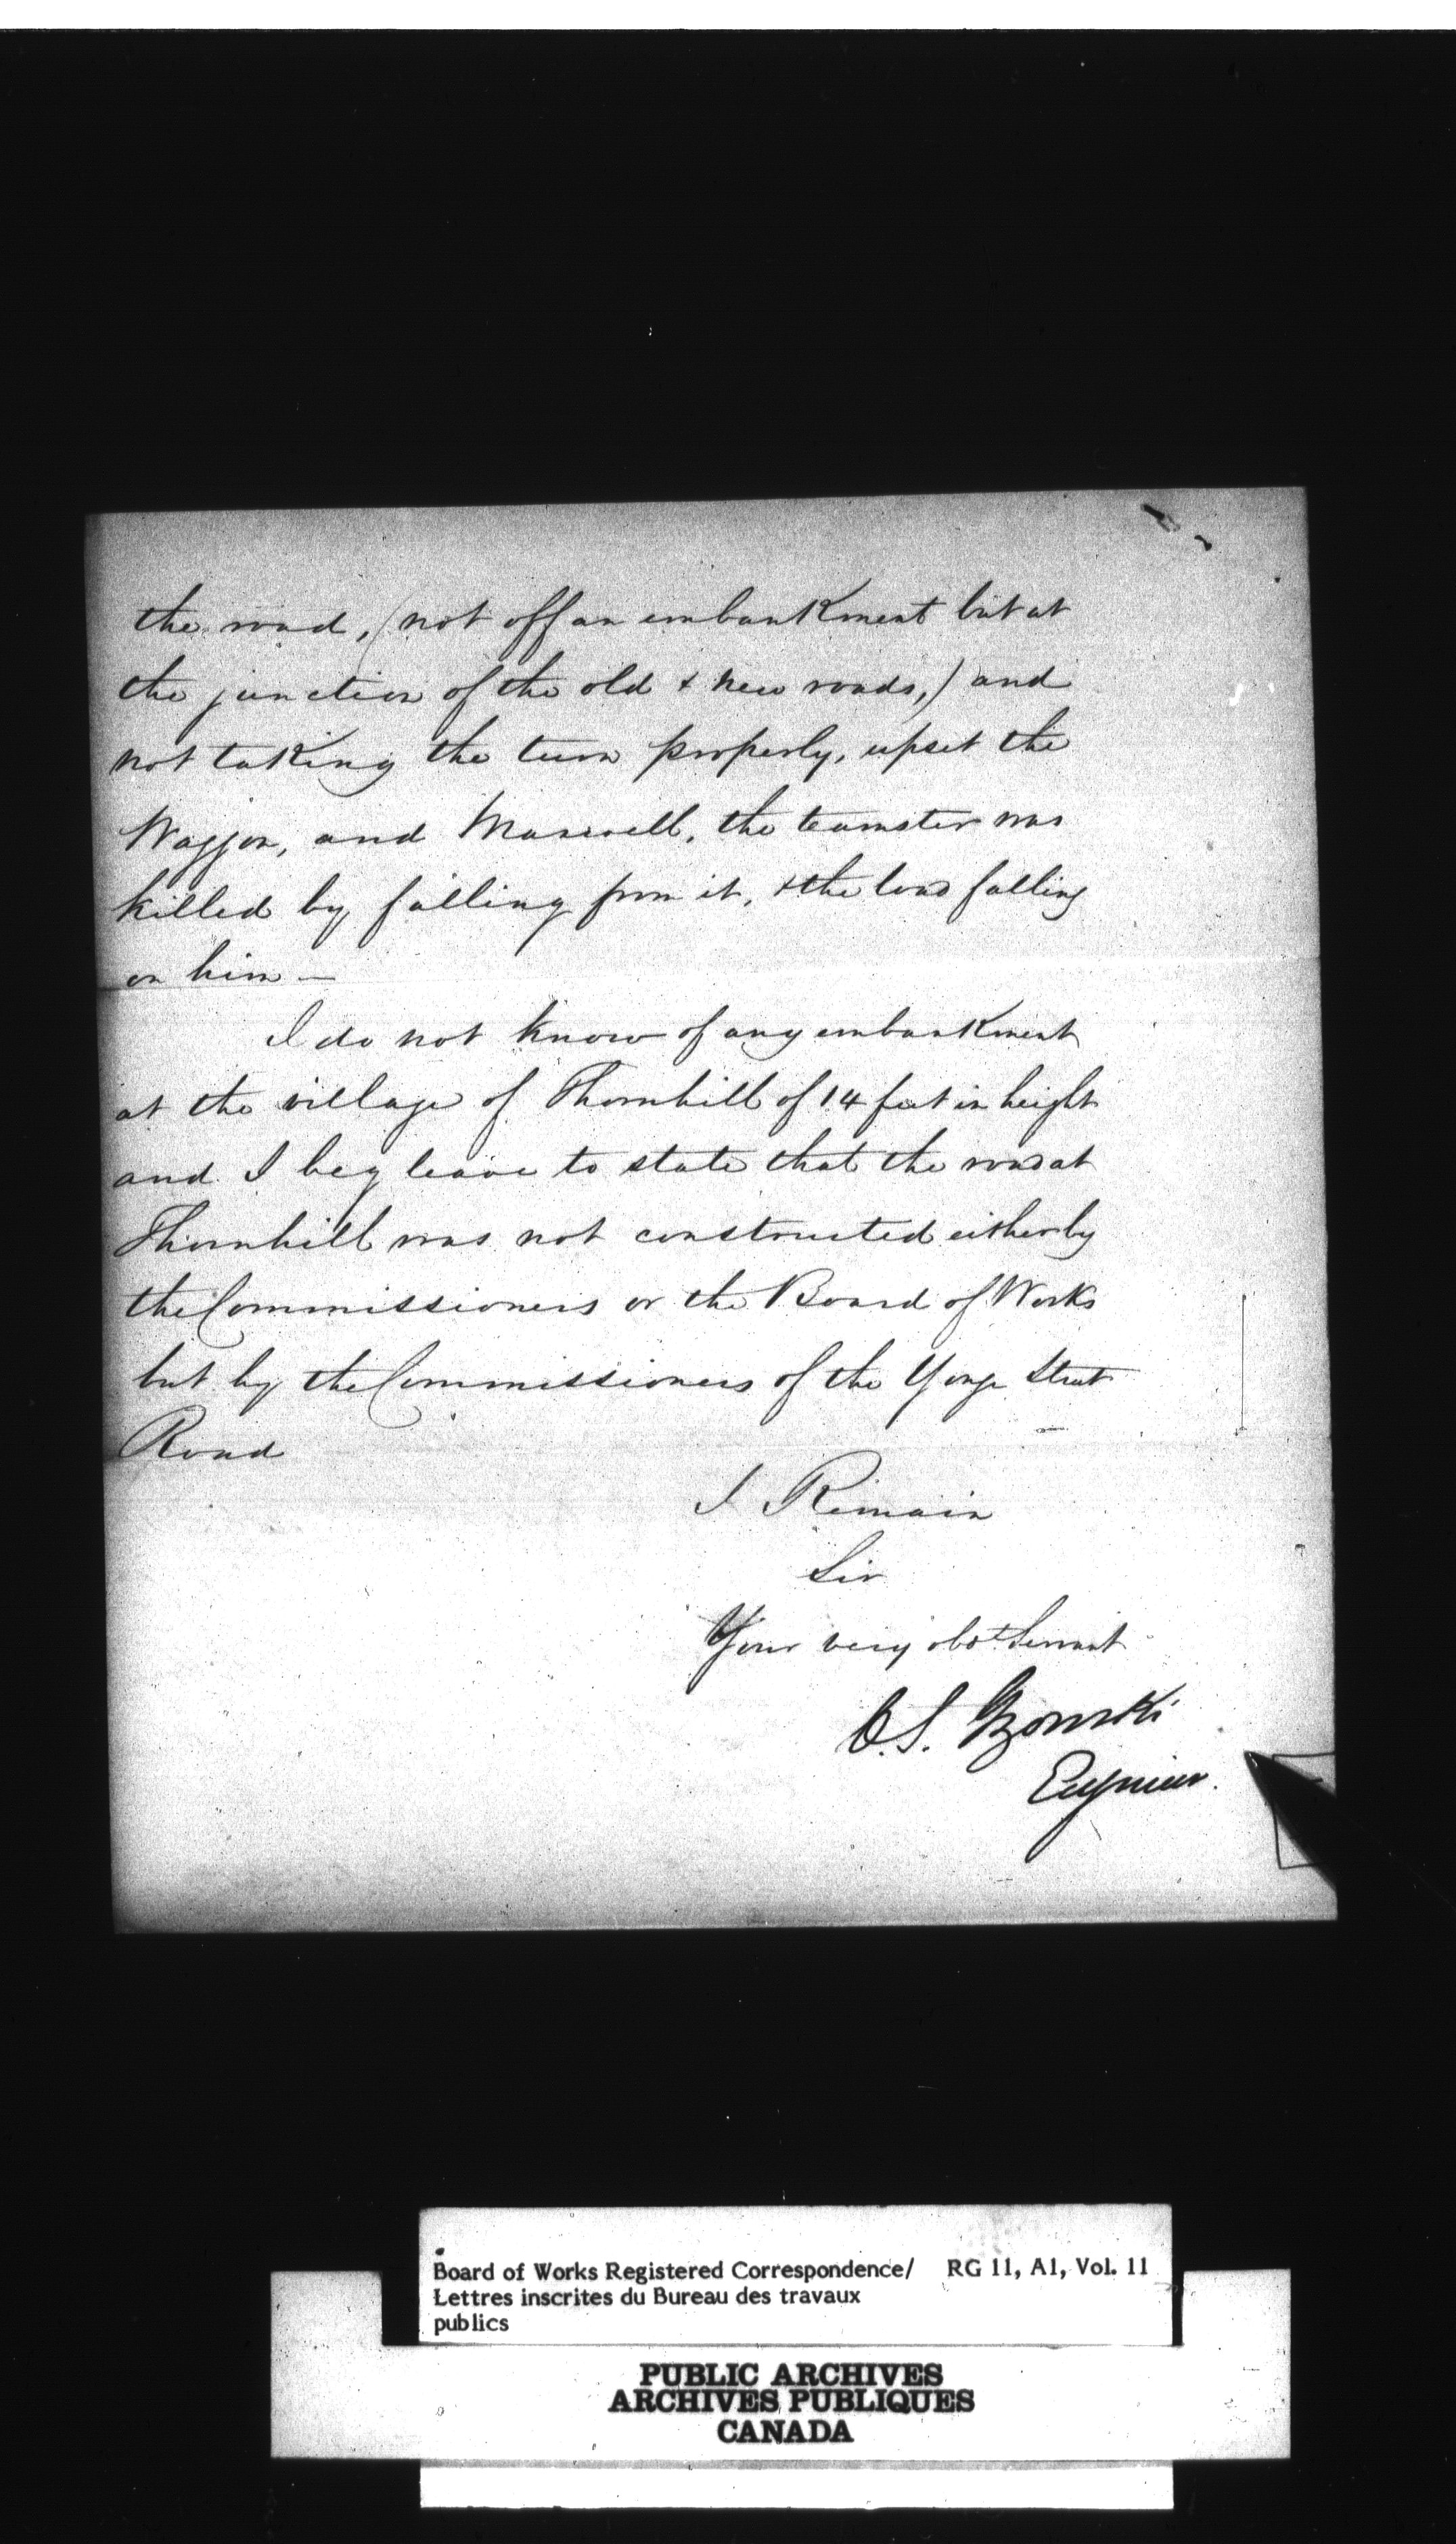 the road, (not off an embankment but at
the junction of the old & new roads,) and
not taking the turn properly, upset the
Waggon, and Maxwell, the teamster was
killed by falling from it, & the load falling
on him —
I do not know of any embankment
at the village of Thornhill of 14 feet in height
and I beg leave to state that the road at
Thornhill was not constructed either by
the Commissioners or the Board of Works
but by the Commissioners of the Yonge Street
Road
I Remain
Sir
Your very obt Servant
C.S. Gzowski
Engineer.
Board of Works Registered Correspondence/ RG 11, A1, Vol. 11
Lettres inscrites du Bureau des travaux
publics
PUBLIC ARCHIVES
ARCHIVES PUBLIQUES
CANADA